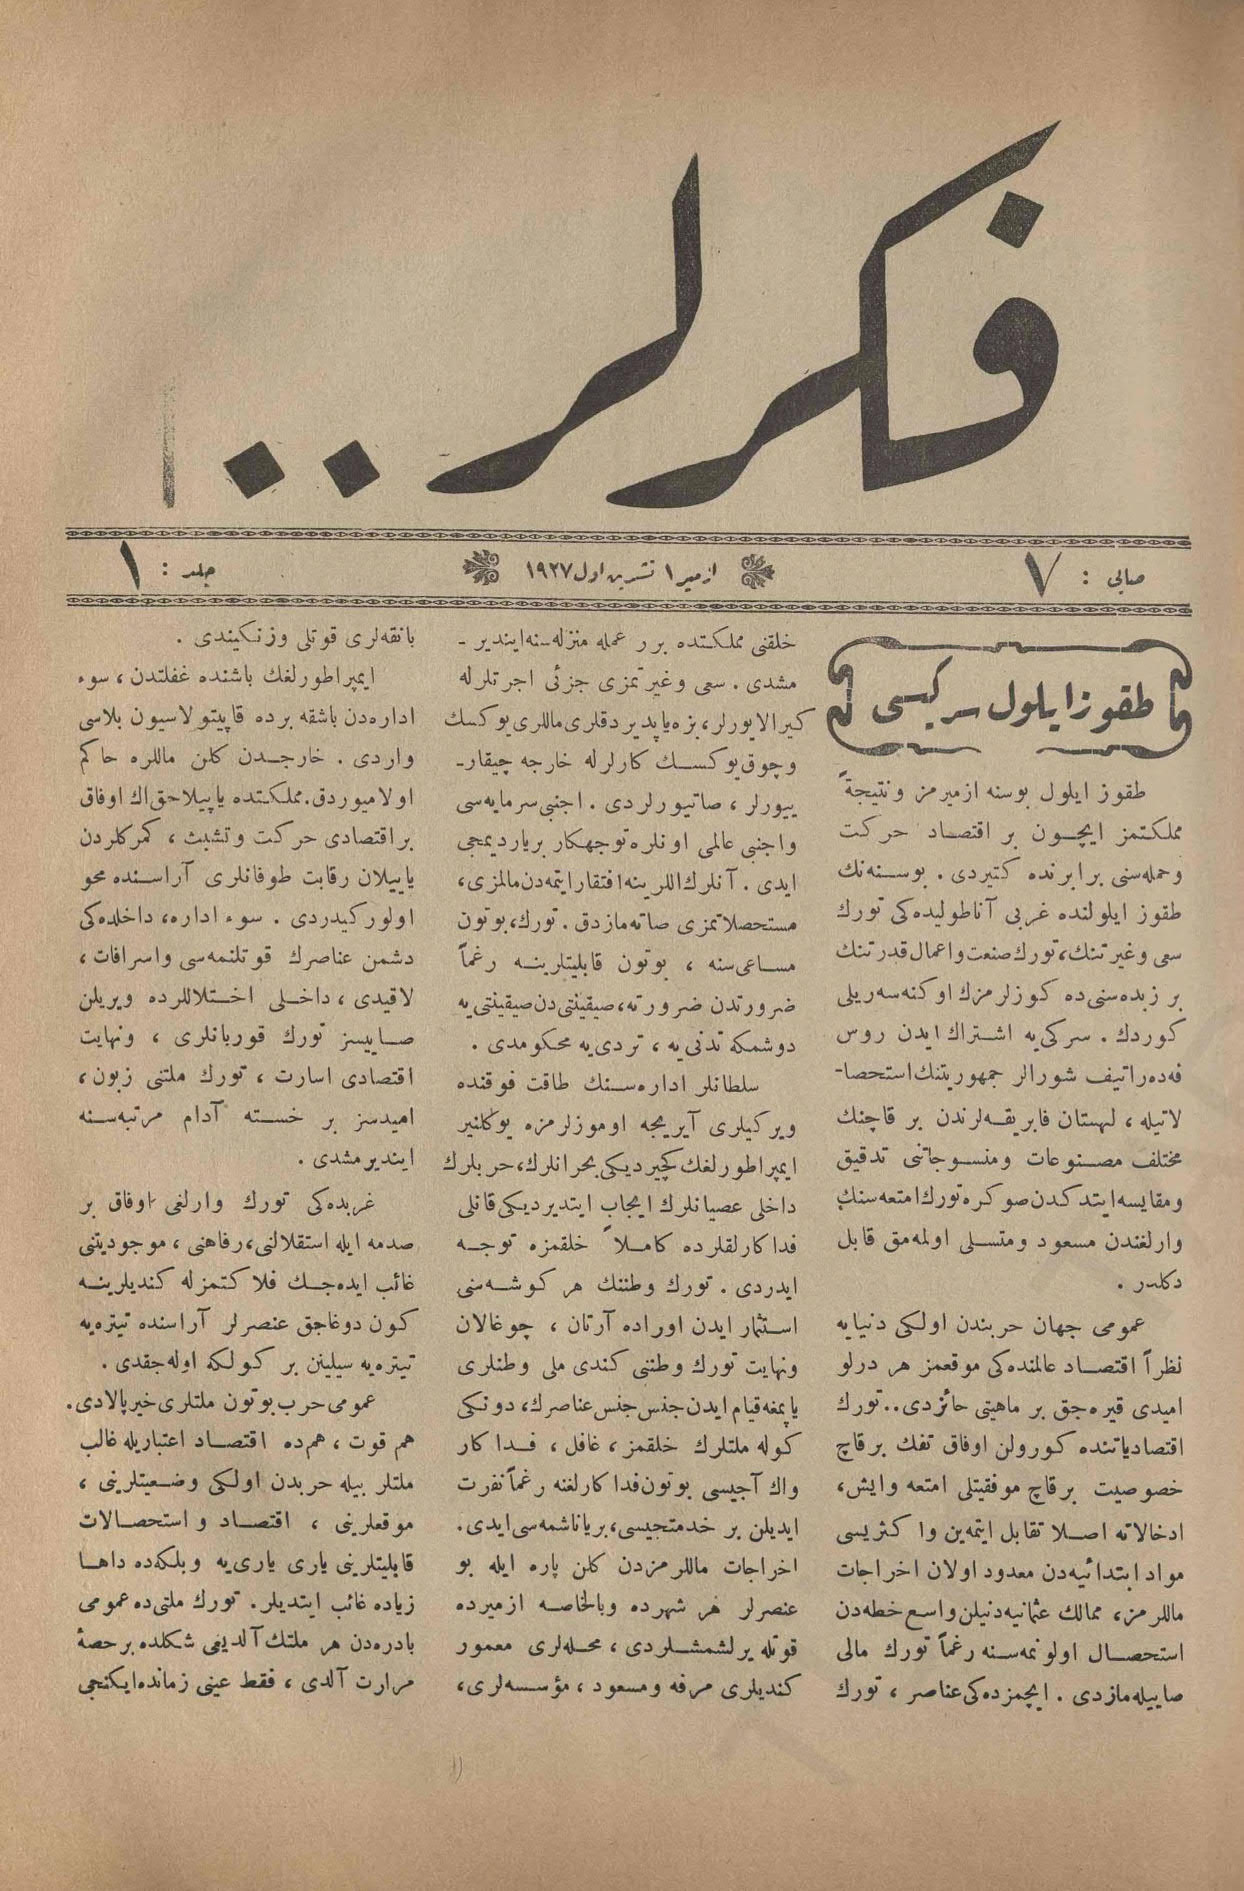 فكرلر..
صايى : ٧
ازمير ١ تشرين اول ١٩٢٧
جلد : ١
طقوز ايلول سركيسى
طقوز ايلول بو سنه ازميرمز و نتيجةً
مملكتمز ايچون بر اقتصاد حركت
و حمله‌سنى برابرنده كتيردى . بو سنه‌نك
طقوز ايلولنده غربى آناطوليده‌كى تورك
سعى و غيرتنك، تورك صنعت و اعمال قدرتنك
بر زبده‌سنى ده كوزلرمزك اوكنه سه‌ريلى
كوردك . سركى‌يه اشتراك ايدن روس
فه‌ده‌راتيف شورالر جمهوريتنك استحصا-
لاتيله ، لهستان فابريقه‌لرندن بر قاچنك
مختلف مصنوعات و منسوجاتنى تدقيق
و مقايسه ايتدكدن صوكره تورك امتعه‌سنك
وارلغندن مسعود و متسلى اولمه‌مق قابل
دكلدر .
عمومى جهان حربندن اولكى دنيايه
نظراً اقتصاد عالمنده‌كى موقعمز هر درلو
اميدى قيره‌جق بر ماهيتى حائزدى.. تورك
اقتصادياتنده كورولن اوفاق تفك بر قاچ
خصوصيت بر قاچ موفقيتلى امتعه و ايش،
ادخالاته اصلا تقابل ايتمه‌ين و اكثريسى
مواد ابتدائيه‌دن معدود اولان اخراجات
ماللرمز، ممالك عثمانيه دنيلن واسع خطه‌دن
استحصال اولونمه‌سنه رغماً تورك مالى
صاييله‌مازدى . ايچمزده‌كى عناصر ، تورك
خلقنى مملكتده برر عمله منزله‌سنه اينديرـ
مشدى . سعى و غيرتمزى جزئى اجرتلرله
كيرالايورلر، بزه ياپديردقلرى ماللرى يوكسك
و چوق يوكسك كارلرله خارجه چيقارـ
ييورلر ، صاتيورلردى . اجنبى سرمايه‌سى
و اجنبى عالمى اونلره توجهكار بر ياردیمجى
ايدى . آنلرك اللرينه افتقار ايتمه‌دن مالمزى،
مستحصلاتمزى صاته‌مازدق . تورك، بوتون
مساعى‌سنه ، بوتون قابليتلرينه رغماً
ضرورتدن ضرورته، صيقينتى‌دن صيقينتى‌يه
دوشمكه تدنى‌يه ، تردى‌يه محكومدى .
سلطانلر اداره‌سنك طاقت فوقنده
ويركيلرى آيريجه اوموزلرمزه يوكلنير
ايمپراطورلغك كچيرديكى بحرانلرك، حربلرك
داخلى عصيانلرك ايجاب ايتديرديكى قانلى
فداكارلقلرده كاملاً خلقمزه توجه
ايدردى . تورك وطننك هر كوشه‌سنى
استثمار ايدن اوراده آرتان ، چوغالان
و نهايت تورك وطننى كندى ملى وطنلرى
ياپمغه قيام ايدن جنس جنس عناصرك، دونكى
كوله ملتلرك خلقمز، غافل ، فداكار
و اك آجيسى بوتون فداكارلغنه رغماً نفرت
ايديلن بر خدمتجيسى، بر ياناشمه‌سى ايدى.
اخراجات ماللرمزدن كلن پاره ايله بو
عنصرلر هر شهرده و بالخاصه ازميرده
قوتله يرلشمشلردى ، محله‌لرى معمور
كنديلرى مرفه و مسعود ، مؤسسه‌لرى،
بانقه‌لرى قوتلى و زنكيندى .
ايمپراطورلغك باشنده غفلتدن ، سوء
اداره‌دن باشقه برده قاپيتولاسيون بلاسى
واردى . خارجدن كلن ماللره حاكم
اولاميوردق. مملكتده ياپيلاجق اك اوفاق
بر اقتصادى حركت و تشبث ، كمركلردن
ياپيلان رقابت طوفانلرى آراسنده محو
اولور كيدردى . سوء اداره، داخلده‌كى
دشمن عناصرك قوتلنمه‌سى و اسرافات ،
لاقيدى ، داخلى اختلاللرده ويريلن
صاييسز تورك قوربانلرى ، و نهايت
اقتصادى اسارت ، تورك ملتنى زبون،
اميدسز بر خسته آدام مرتبه‌سنه
اينديرمشدى .
غربده‌كى تورك وارلغى اوفاق بر
صدمه ايله استقلالنى، رفاهنى ، موجوديتنى
غائب ايده‌جك فلاكتمزله كنديلرينه
كون دوغاجق عنصرلر آراسنده تيتره‌يه
تيتره‌يه سيلينن بر كولكه اوله‌جقدى .
عمومى حرب بوتون ملتلرى خيرپالادى.
هم قوت ، هم‌ده اقتصاد اعتباريله غالب
ملتلر بيله حربدن اولكى وضعيتلرينى ،
موقعلرينى ، اقتصاد و استحصالات
قابليتلرينى يارى يارى‌يه و بلكه‌ده داها
زياده غائب ايتديلر. تورك ملتى‌ده عمومى
بادره‌دن هر ملتك آلديغى شكلده بر حصهٔ
مرارت آلدى ، فقط عينى زمانده ايكنجى